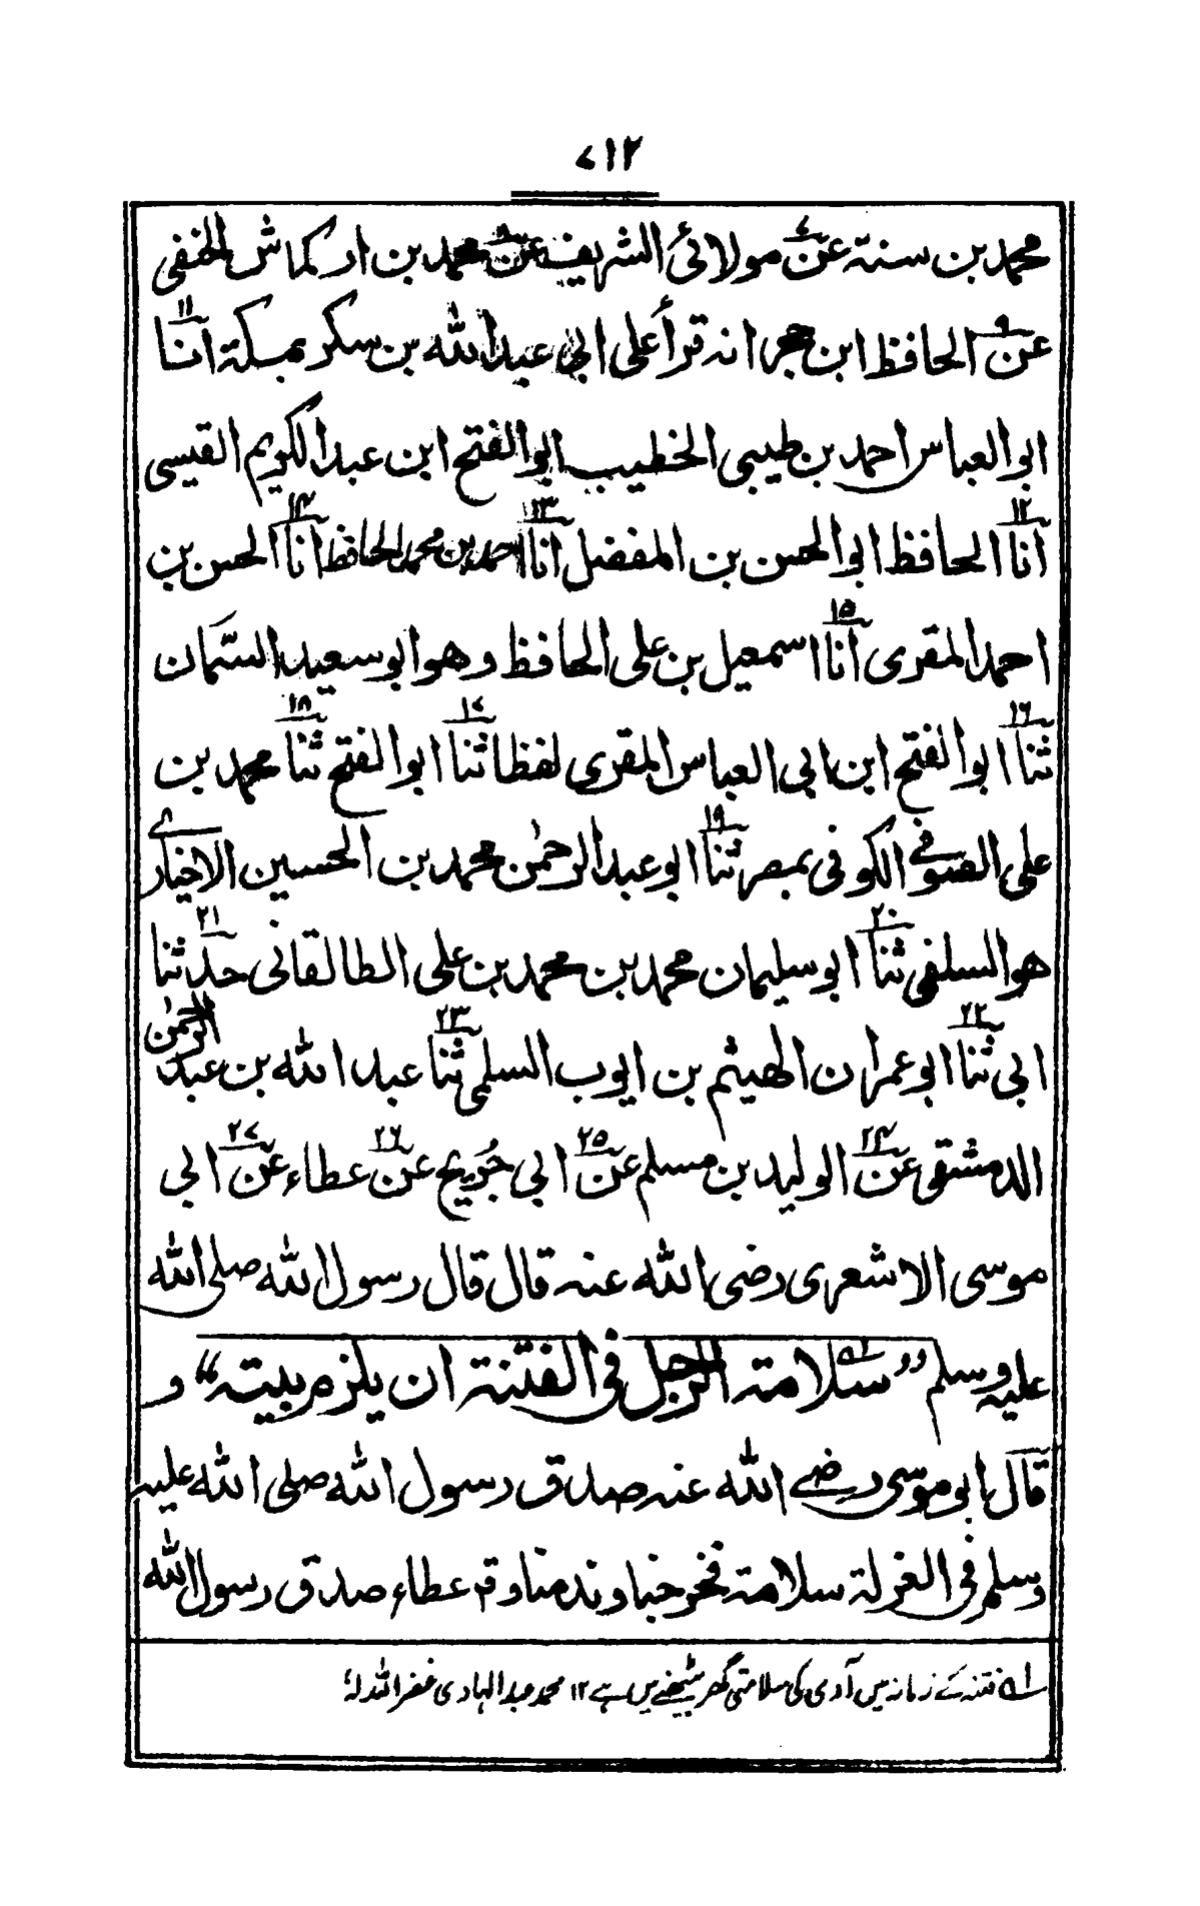 ۷۱۲
محمد بن سنة عن۷ مولائی الشریف عن۸ محمد بن ارکماش الحنفی
عن۹ الحافظ ابن حجر انه قرأ علی ابی عبد الله بن سکر بمکة انا۱۱
ابو العباس احمد بن طیبی الخطیب ابو الفتح ابن عبد الکریم القیسی
انا۱۲ الحافظ ابو الحسن بن المفضل انا۱۳ احمد بن محمد الحافظ انا۱۴ الحسن بن
احمد المقری انا۱۵ اسمعیل بن علی الحافظ وهو ابو سعید السّمان
ثنا۱۶ ابو الفتح ابن ابی العباس المقری لفظا ثنا۱۷ ابو الفتح ثنا۱۸ محمد بن
علی الصوفی الکوفی بمصر ثنا۱۹ ابو عبد الرحمٰن محمد بن الحسین الاخباری
هو السلفی ثنا۲۰ ابو سلیمان محمد بن محمد بن علی الطالقانی حدثنا۲۱
ابی ثنا۲۲ ابو عمران الهیثم بن ایوب السلمی ثنا۲۳ عبد الله بن عبد الرحمٰن
الدمشقی عن۲۴ الولید بن مسلم عن۲۵ ابی جُریج عن۲۶ عطاء عن۲۷ ابی
موسی الاشعری رضی الله عنه قال قال رسول الله صلی الله
علیه وسلم ”سلامة۱ الرجل فی الفتنة ان یلزم بیته“ و
قال ابو موسی رضی الله عنه صدق رسول الله صلی الله علیه
وسلم فی العزلة سلامة فخر خبا وندمنا وقد عطاء صدق رسول الله
۱ فتنہ کے زمانہ میں آدمی کی سلامتی گھر بیٹھنے میں ہے ۱۲ محمد عبد الہادی غفر اللہ لہٗ